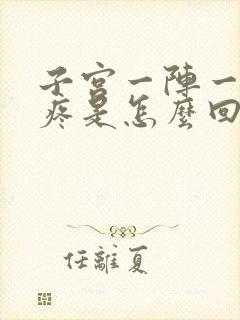 子宮一陣一
疼是怎麼回
任離夏